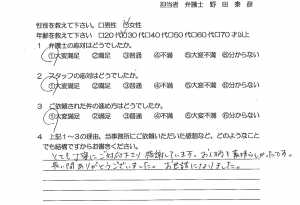 担当者 弁護士 野田 泰彦
性別を教えて下さい。□男性 ☑女性
年齢を教えて下さい □20代□30代□40代□50代□60代□70才以上
1 弁護士の応対はどうでしたか。
①大変満足 ②満足 ③普通 ④不満 ⑤大変不満 ⑥分からない
2 スタッフの応対はどうでしたか。
①大変満足 ②満足 ③普通 ④不満 ⑤大変不満 ⑥分からない
3 ご依頼された件の進め方はどうでしたか。
①大変満足 ②満足 ③普通 ④不満 ⑤大変不満 ⑥分からない
4 上記1~3の理由、当事務所にご依頼いただいた感想など、どのようなこと
でも結構ですからお書きください。
とても丁寧にご対応下さり感謝しています。お人柄も素晴らしかったです。
長い間ありがとうございました。お世話になりました。